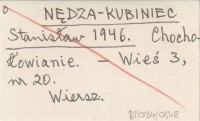 NĘDZA-KUBINIEC
Stanisław 1946. Chocho-
łowianie. – Wieś 3,
nr 20.
Wiersz.